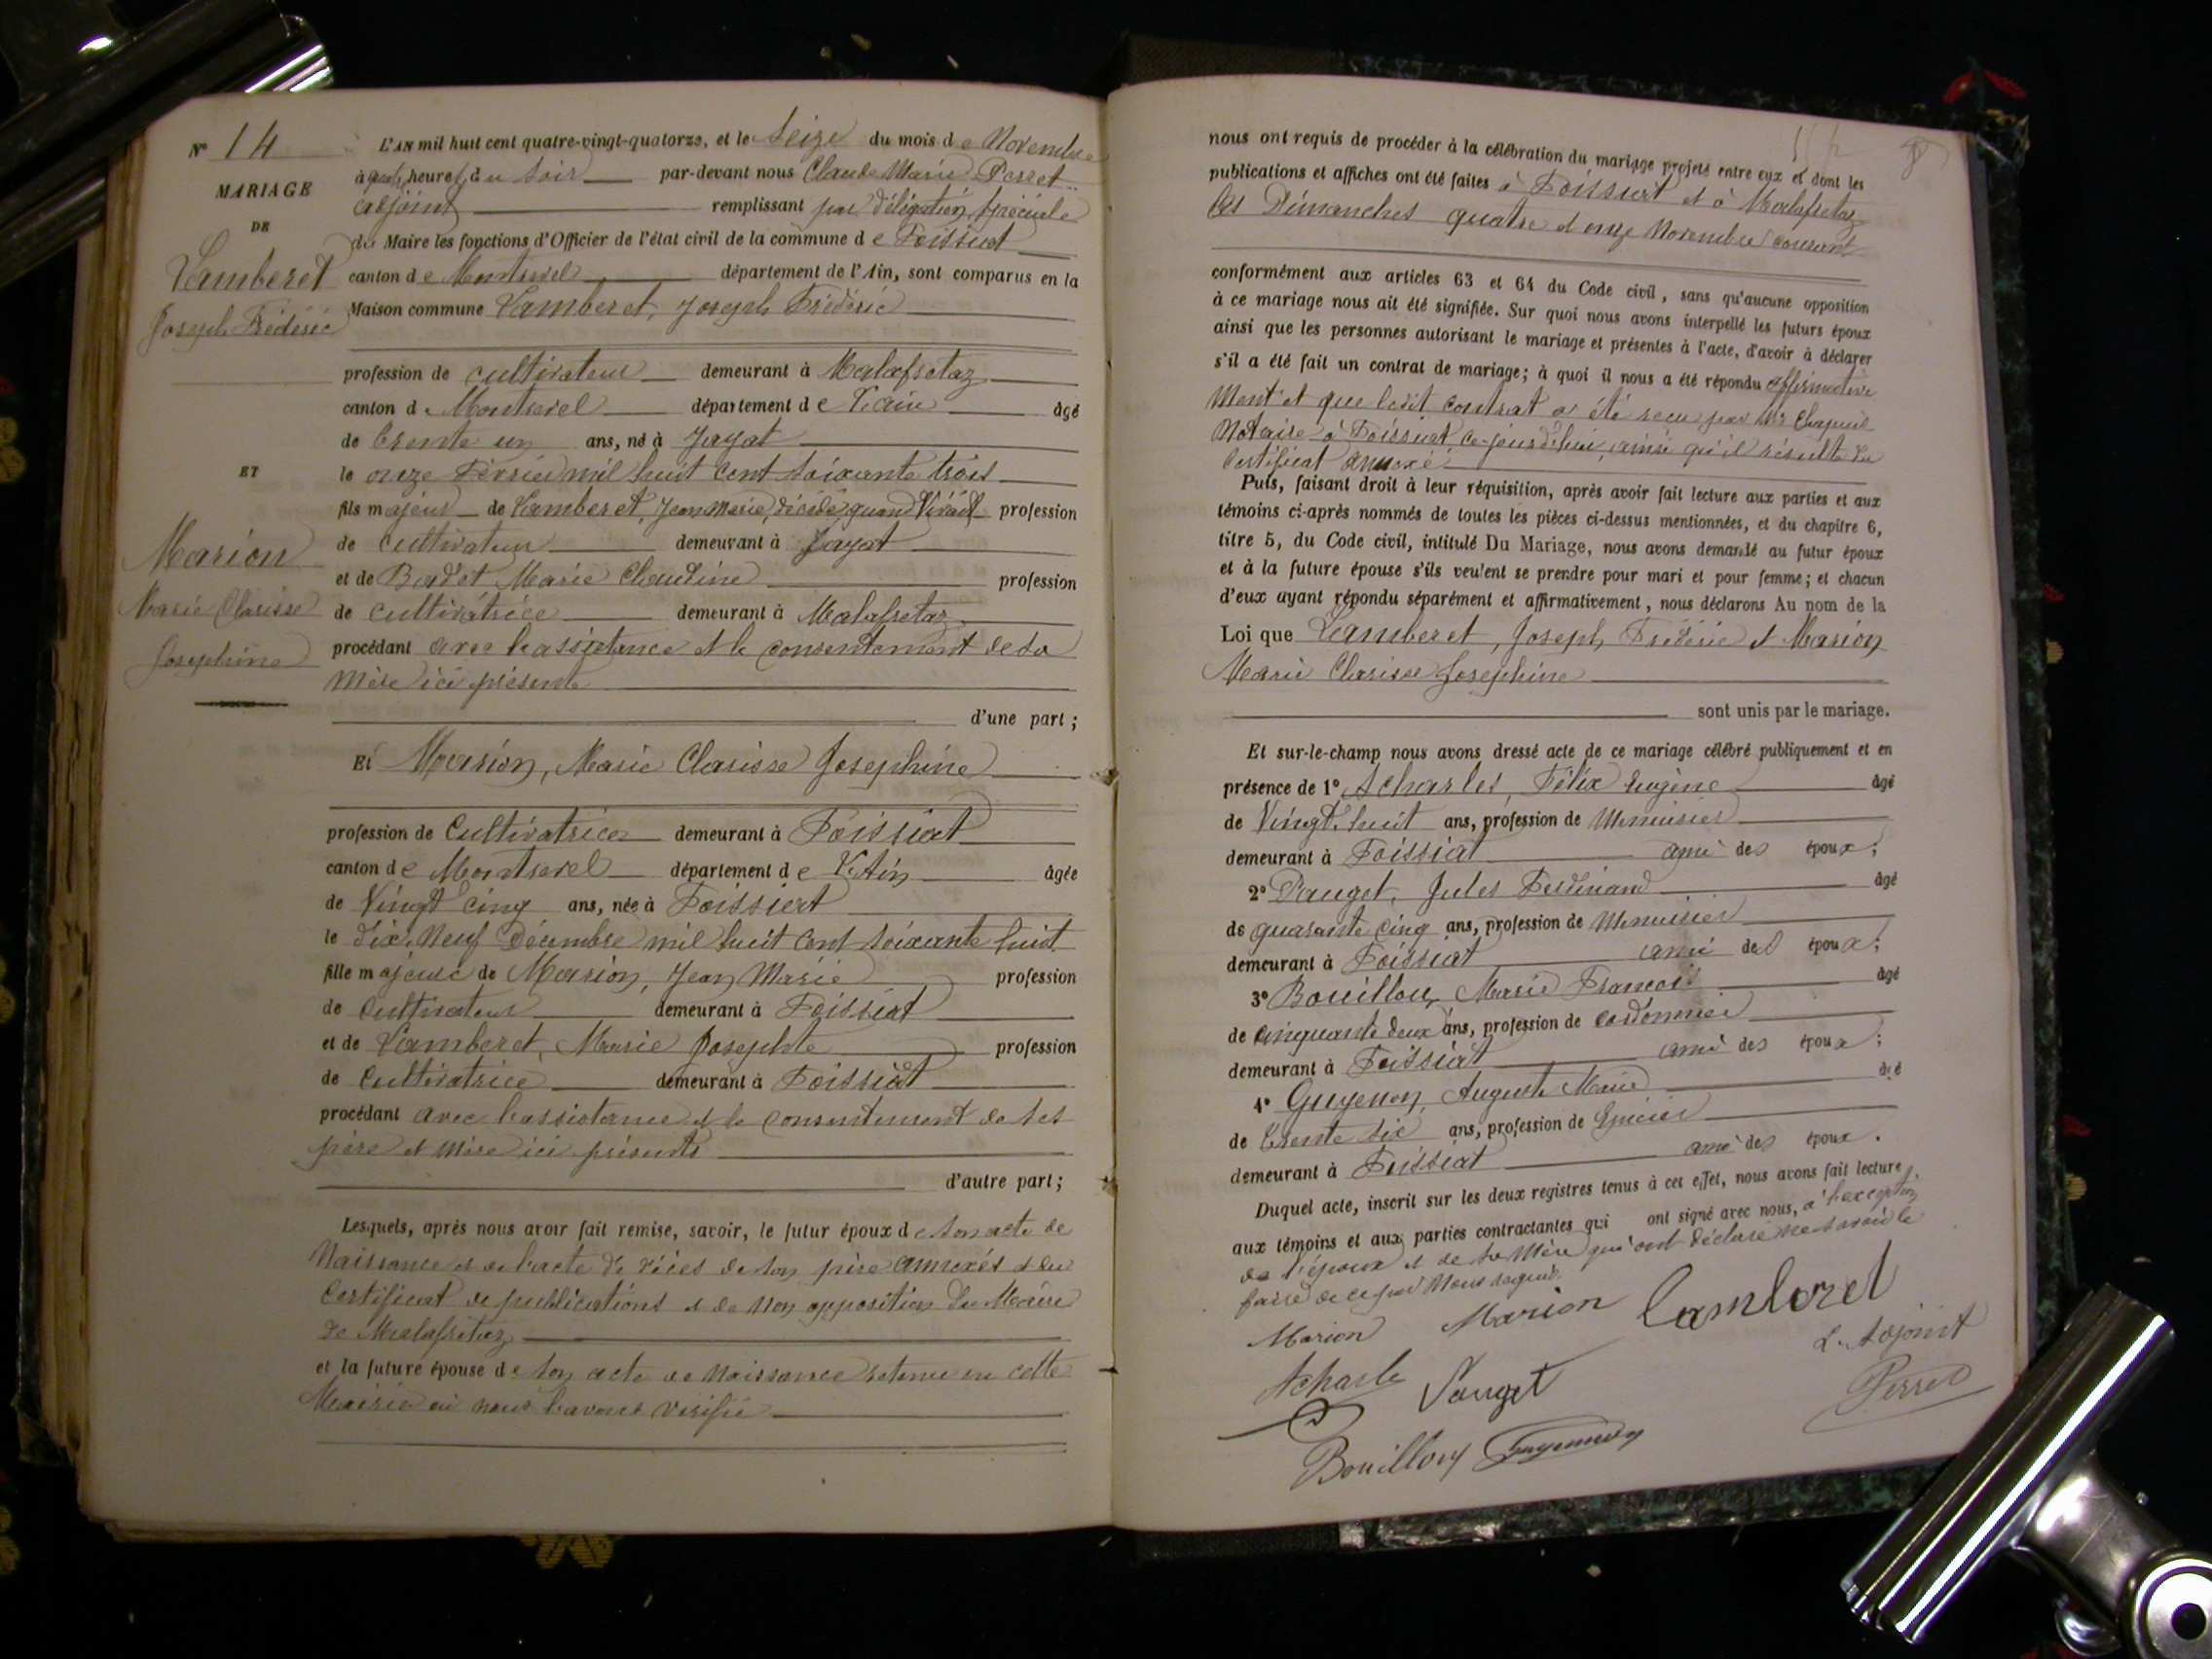 N° 14
MARIAGE
DE
Lamberet
Joseph Frédéric
ET
Marion
Marie Clarisse
Josephine
L'AN mil huit cent quatre-vingt-quatorze, et le Seize du mois de Novembre
à quatre heures du soir par-devant nous Claude Marie Perret
adjoint remplissant par délégation spéciale
du Maire les fonctions d'Officier de l'état civil de la commune de Foissiat
canton de Montrevel département de l'Ain, sont comparus en la
Maison commune Lamberet, Joseph Frédéric
profession de cultivateur demeurant à Malafretaz
canton de Montrevel département de l'ain âgé
de trente un ans, né à Jayat
le onze Février mil huit cent soixante trois
fils majeur de Lamberet, Jean Marie, décédé, quand Vivait profession
de cultivateur demeurant à Jayat
et de Badet Marie Claudine profession
de cultivatrice demeurant à Malafretaz
procédant avec l'assistance et le consentement de sa
mère ici présente
d'une part ;
Et Marion, Marie Clarisse Josephine
profession de Cultivatrice demeurant à Foissiat
canton de Montrevel département de l'Ain âgée
de Vingt Cinq ans, née à Foissiat
le dix Neuf Décembre mil huit cent soixante huit
fille majeure de Marion, Jean Marie profession
de Cultivateur demeurant à Foissiat
et de Lamberet, Marie Josephte profession
de Cultivatrice demeurant à Foissiat
procédant avec l'assistance et le consentement de ses
père et mère ici présents
d'autre part ;
Lesquels, après nous avoir fait remise, savoir, le futur époux de son acte de
Naissance et de l'acte de décès de son père annexés et du
Certificat de publications et de Non opposition du Maire
de Malafretaz
et la future épouse de son acte de Naissance retenu en cette
Mairie où nous l'avons vérifié
nous ont requis de procéder à la célébration du mariage projeté entre eux et dont les
publications et affiches ont été faites à Foissiat et à Malafretaz
les Dimanches quatre et onze Novembre courant
conformément aux articles 63 et 64 du Code civil, sans qu'aucune opposition
à ce mariage nous ait été signifiée. Sur quoi nous avons interpellé les futurs époux
ainsi que les personnes autorisant le mariage et présentes à l'acte, d'avoir à déclarer
s'il a été fait un contrat de mariage; à quoi il nous a été répondu affirmative
Ment et que ledit contrat a été reçu par Me
Notaire à Foissiat ce-jourd'hui, ainsi qu'il résulte du
Certificat annexé
Puis, faisant droit à leur réquisition, après avoir fait lecture aux parties et aux
témoins ci-après nommés de toutes les pièces ci-dessus mentionnées, et du chapitre 6,
titre 5, du Code civil, intitulé Du Mariage, nous avons demandé au futur époux
et à la future épouse s'ils veulent se prendre pour mari et pour femme; et chacun
d'eux ayant répondu séparément et affirmativement, nous déclarons Au nom de la
Loi que Lamberet, Joseph, Frédéric et Marion
Marie Clarisse Josephine
sont unis par le mariage.
Et sur-le-champ nous avons dressé acte de ce mariage célébré publiquement et en
présence de 1° Acharles, Félix Eugène âgé
de Vingt-huit ans, profession de Menuisier
demeurant à Foissiat ami des époux ;
2° Pauget, Jules Ferdinand âgé
de quarante cinq ans, profession de Menuisier
demeurant à Foissiat ami des époux ;
3° Bouillon, Marie François âgé
de cinquante deux ans, profession de cordonnier
demeurant à Foissiat ami des époux ;
4° Guyenon, Auguste Marie âgé
de trente six ans, profession de Epicier
demeurant à Foissiat ami des époux.
Duquel acte, inscrit sur les deux registres tenus à cet effet, nous avons fait lecture
aux témoins et aux parties contractantes qui ont signé avec nous, à l'exception
de l'époux et de sa Mère qui ont déclaré ne savoir le
faire de ce par Nous requis.
Marion Marion Lamberet
L'Adjoint
Acharle Pauget Perret
Bouillon Guyennon